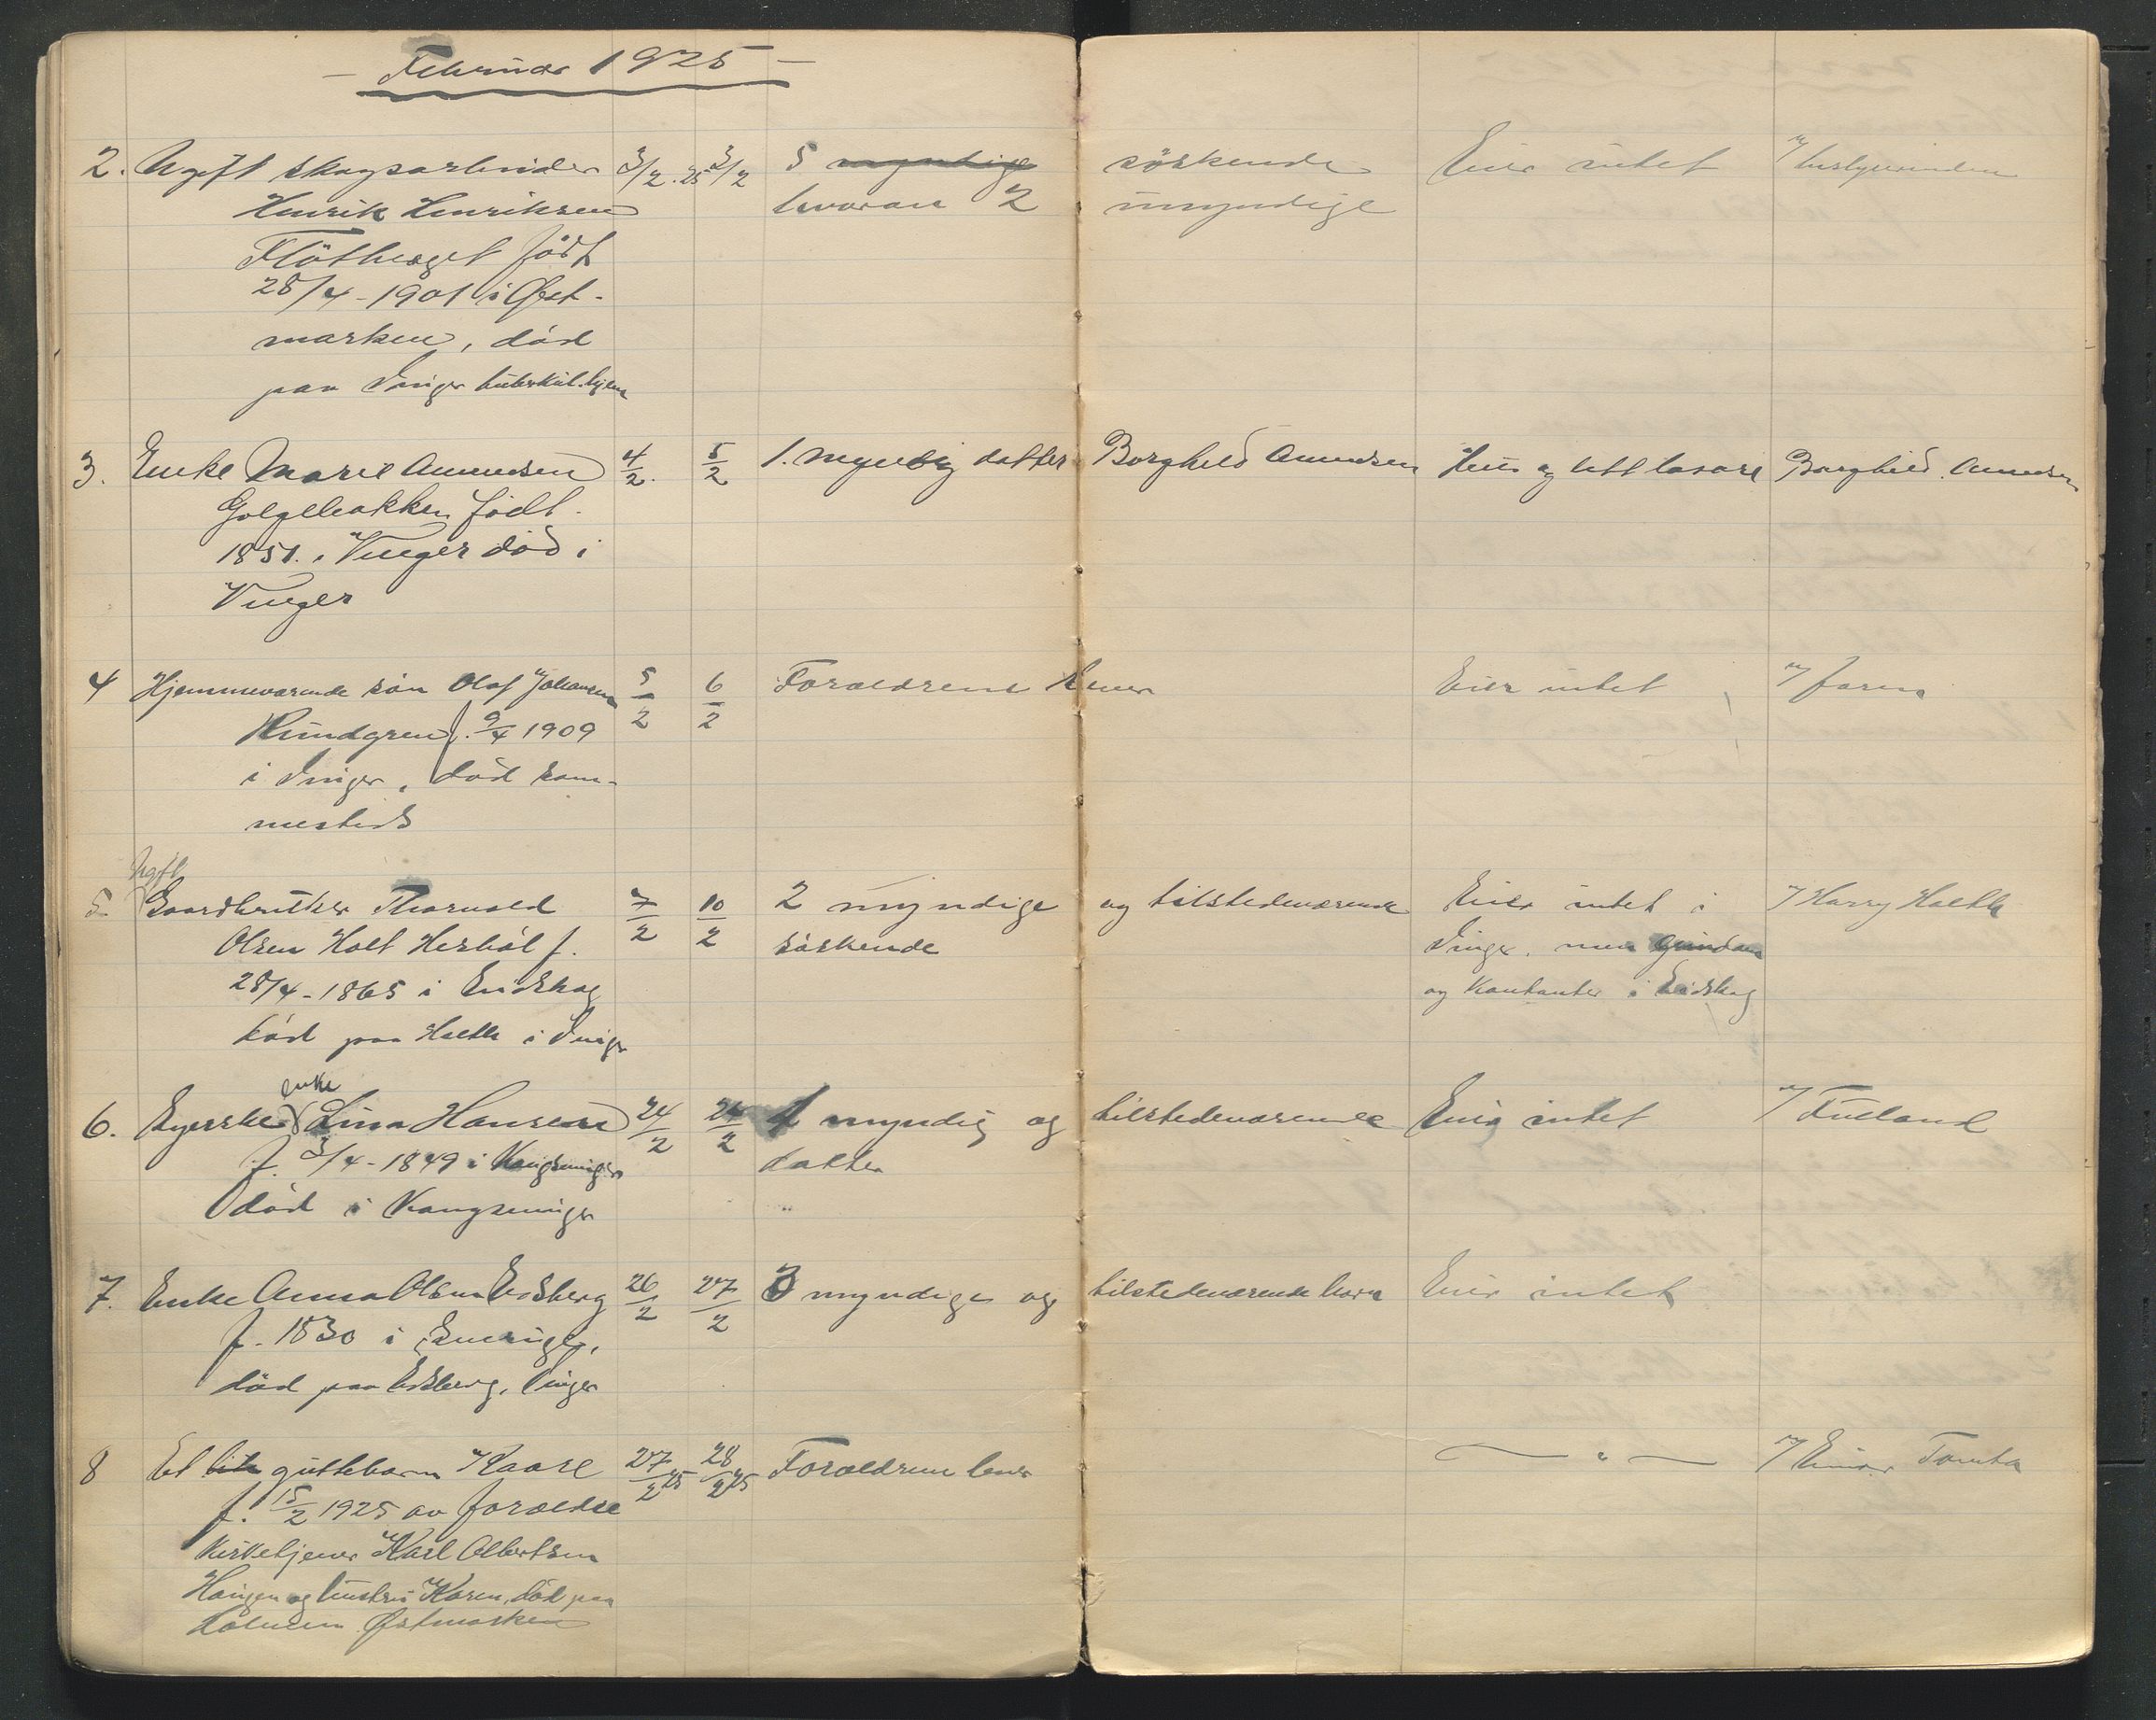 - Februar 1925 -
2. Ugift skogsarbeider 3/2.25 3/2 5 myndige søskende Eier intet v/ bestyrerinden
Henrik Henriksen hvorav 2 umyndige
Flötberget född
28/4-1901 i Øst-
marken, död
paa Vinger tuberkul.hjem
3. Enke Marie Amundsen 4/2. 5/2 1. myndig datter Borghild Amundsen Hus og litt løsøre Borghild Amundsen
født
1851. i Vinger död i
Vinger
4 Hjemmeværende sön Olaf Johansen 5/2 6/2 Forældrene lever Eier intet v/ faren
Rundgren f. 9/4 1909
i Vinger, död sam-
mesteds
Ugift
5. Gaardbruker Thorvald 7/2 10/2 2 myndige og tilstedeværende Eier intet i v/ Harry Holth
Olsen Holt f. søskende Vinger, men eiendom
28/4-1865 i Eidskog og kontanter i Eidskog
död paa Holth i Vinger
enke
6. Syerske Lina Hansen 24/2 26/2 1 myndig og tilstedeværende Eier intet v/ Fueland
f. 3/4-1849 i Kongsvinger datter
död i Kongsvinger
7. Enke Anna Olsen Edsberg 26/2 27/2 3 myndige og tilstedeværende barn Eier intet
f. 1830 i Sverige,
död paa Edsberg, Vinger
8 Et lite guttebarn Kaare 27/2 25 28/2 25 Forældrene lever — " — v/ Einar Tomta
f. 15/2 1925 av forældre
Kirketjener Karl Albertsen
Haugen og hustru Karen, död paa
Holmen Østmarken